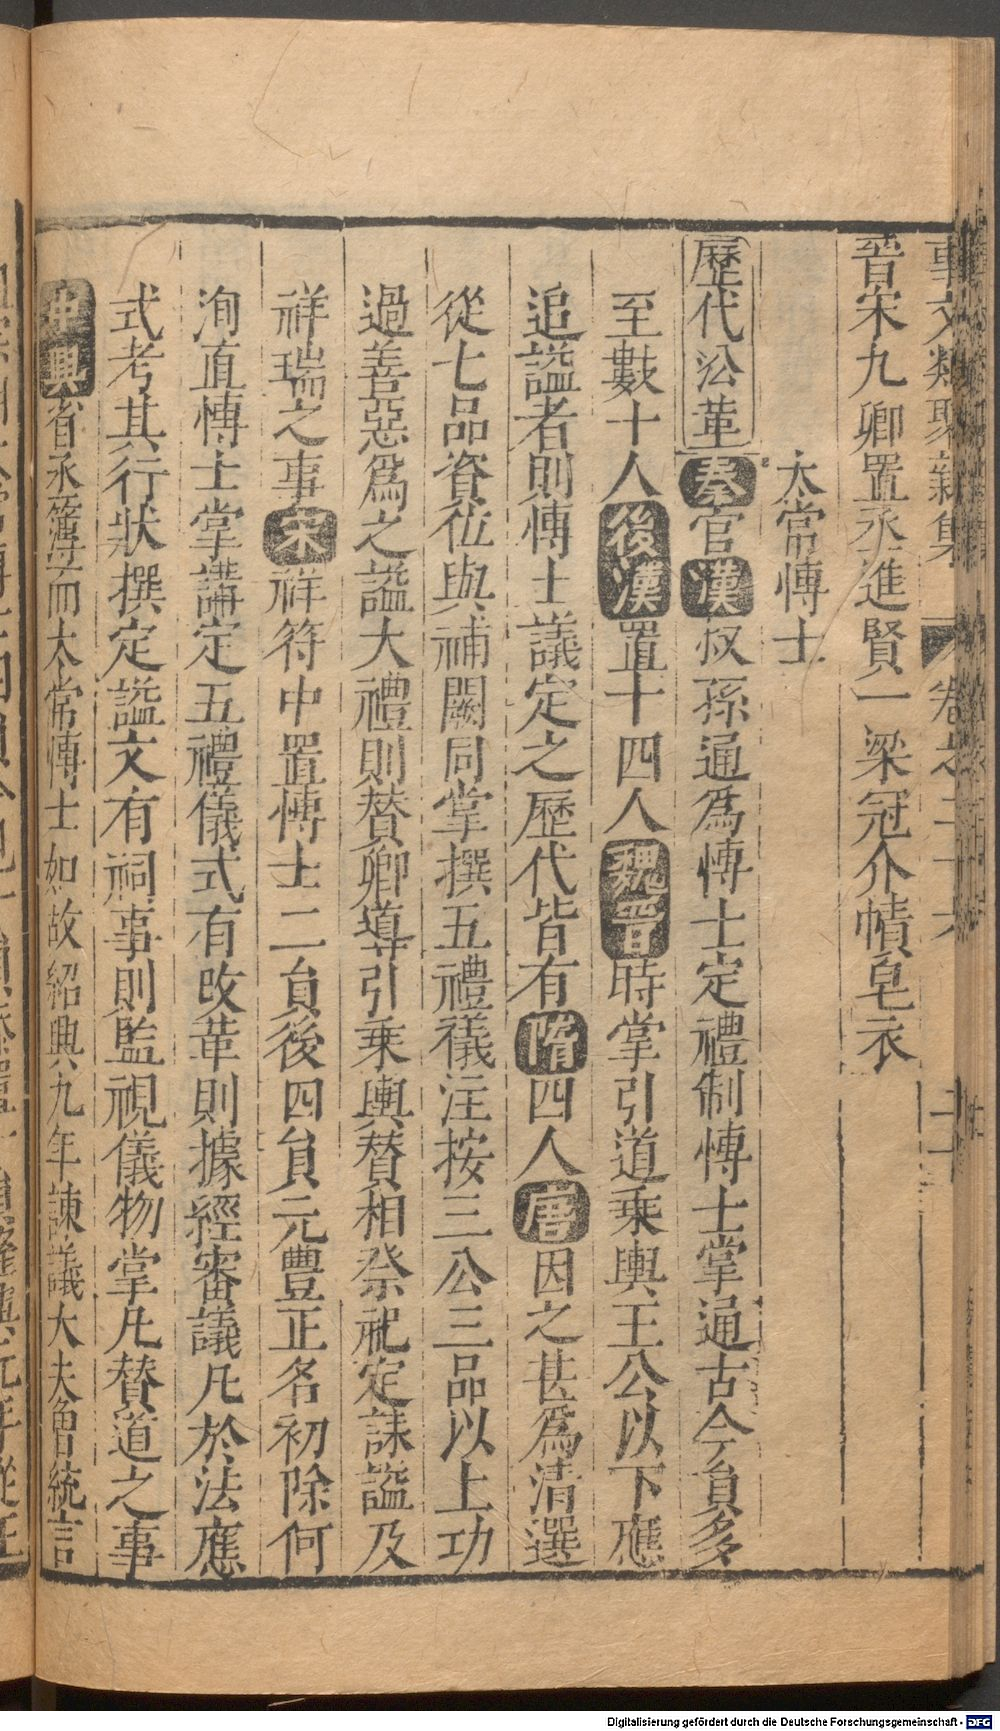 事文類聚新集 卷之二十六 二十
晉宋九卿置丞進賢一梁冠介幘皂衣
太常博士
歷代沿革秦官漢叔孫通爲博士定禮制博士掌通古今員多
至數十人後漢置十四人魏晉時掌引道乘輿王公以下應
追謚者則博士議定之歷代皆有隋四人唐因之甚爲清選
從七品資位與補闕同掌撰五禮儀注按三公三品以上功
過善惡爲之謚大禮則賛卿導引乘輿賛相祭祀定誄謚及
祥瑞之事宋祥符中置博士二員後四員元豐正名初除何
洵直博士掌講定五禮儀式有改革則據經審議凡於法應
式考其行狀撰定謚文有祠事則監視儀物掌凡賛道之事
中興省丞簿而太常博士如故紹興九年諫議大夫曾統言
Digitalisierung gefördert durch die Deutsche Forschungsgemeinschaft - DFG